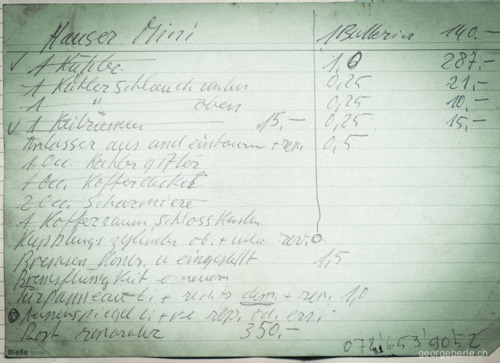 Hauser Mini 1 Batterie 140.-
✓ 1 Kühler 1,0 287.-
1 Kühlerschlauch unten 0,25 21.-
1 " oben 0,25 10.-
✓ 1 Keilriemen 15.- 0,25 15.-
Anlasser aus und einbauen + rep. 0,5
1 Occ. Kühlergitter
1 Occ. Kofferdeckel
2 Occ. Scharniere
1 Kofferraumschloss
Kupplungszylinder ob. + unten rev.
Bremsen kontr. u eingestellt 1,5
Bremsflüssigkeit erneuern
Türpaneaux li + rechts dem. + rep. 1,0
Aussenspiegel li + re rep. od. ers.
Rost reparatur 350.-
georgeberle.ch